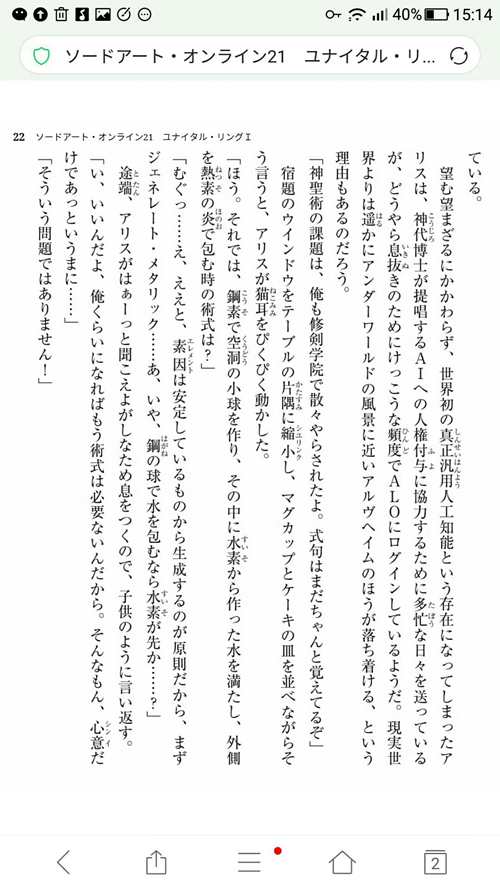 40% 15:14
ソードアート・オンライン21 ユナイタル・リ...
22 ソードアート・オンライン21 ユナイタル・リングⅠ
ている。
望む望まざるにかかわらず、世界初の真正汎用人工知能という存在になってしまったア
リスは、神代博士が提唱するAIへの人権付与に協力するために多忙な日々を送っている
が、どうやら息抜きのためにけっこうな頻度でALOにログインしているようだ。現実世
界よりは遥かにアンダーワールドの風景に近いアルヴヘイムのほうが落ち着ける、という
理由もあるのだろう。
「神聖術の課題は、俺も修剣学院で散々やらされたよ。式句はまだちゃんと覚えてるぞ」
宿題のウインドウをテーブルの片隅に縮小し、マグカップとケーキの皿を並べながらそ
う言うと、アリスが猫耳をぴくぴく動かした。
「ほう。それでは、鋼素で空洞の小球を作り、その中に水素から作った水を満たし、外側
を熱素の炎で包む時の術式は？」
「むぐっ……え、ええと、素因は安定しているものから生成するのが原則だから、まず
ジェネレート・メタリック……あ、いや、鋼の球で水を包むなら水素が先か……？」
途端、アリスがはぁーっと聞こえよがしなため息をつくので、子供のように言い返す。
「い、いいんだよ、俺くらいになればもう術式は必要ないんだから。そんなもん、心意だ
けであっというまに……」
「そういう問題ではありません！」
2